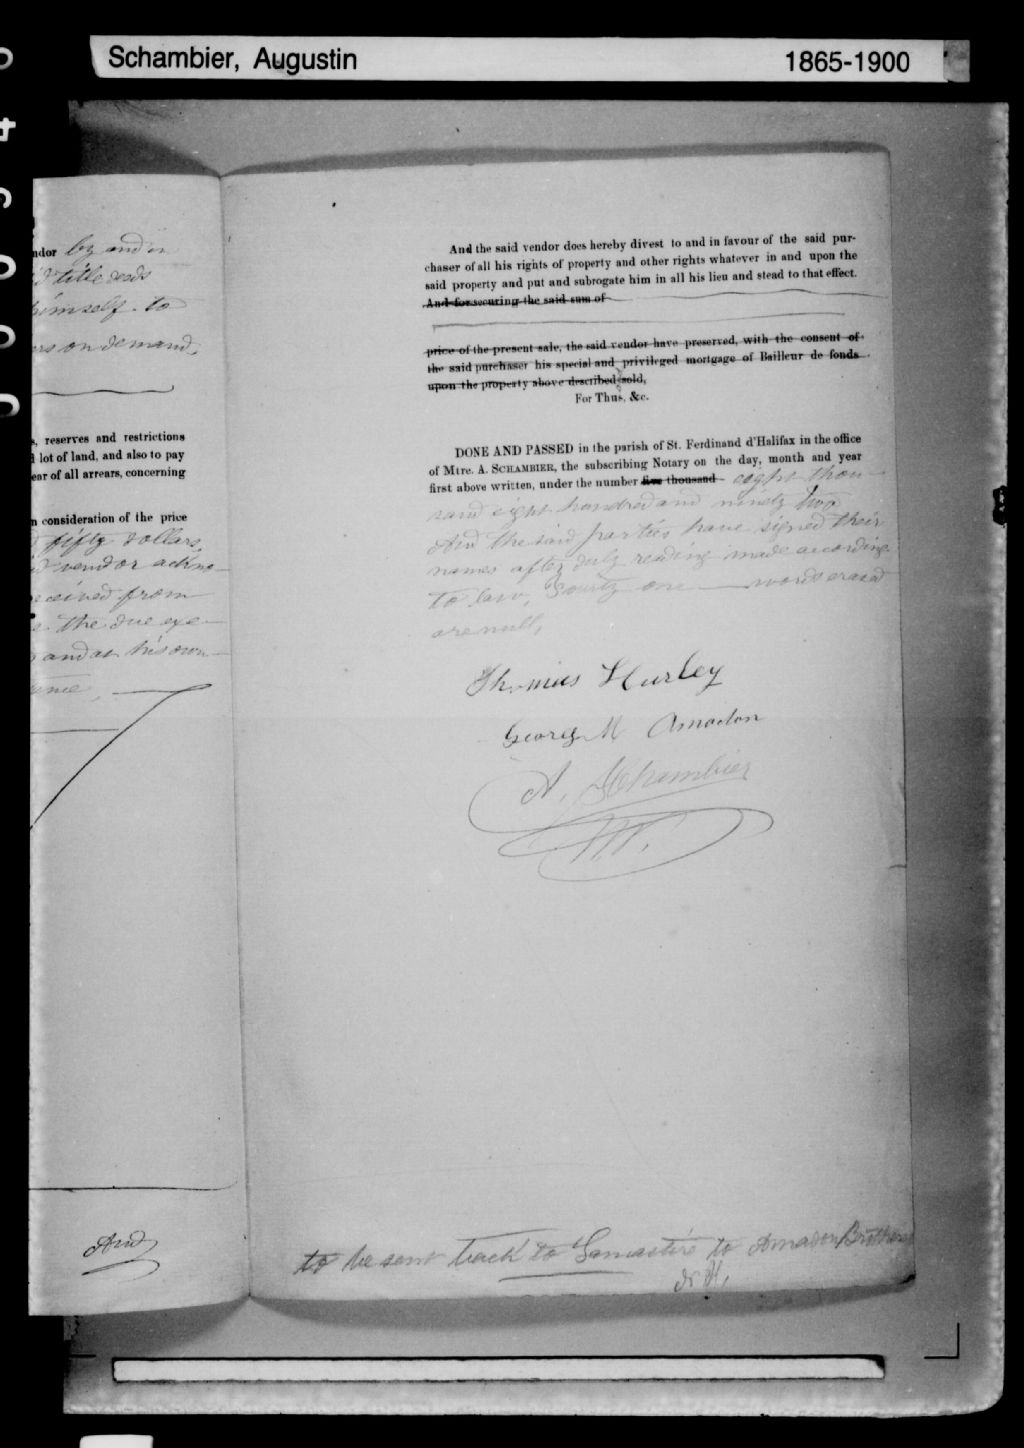 Schambier, Augustin
1865-1900
ndor by and in
title deeds
himself to
ers on demand,
s, reserves and restrictions
lot of land, and also to pay
ear of all arrears, concerning
n consideration of the price
fifty dollars,
vendor ackno-
eceived from
the due exe-
and at his own
And
And the said vendor does hereby divest to and in favour of the said pur-
chaser of all his rights of property and other rights whatever in and upon the
said property and put and subrogate him in all his lieu and stead to that effect.
And for securing the said sum of
price of the present sale, the said vendor have preserved, with the consent of
the said purchaser his special and privileged mortgage of Bailleur de fonds
upon the property above described sold,
For Thus, &c.
DONE AND PASSED in the parish of St. Ferdinand d'Halifax in the office
of Mtre. A. SCHAMBIER, the subscribing Notary on the day, month and year
first above written, under the number five thousand eight thou-
sand eight hundred and ninety two
And the said parties have signed their
names after duly reading made according
to law, Fourty one words erased
are null,
Thomas Hurley
George M Amadon
A. Schambier
N.P.
to be sent back to to Amadon Brothers